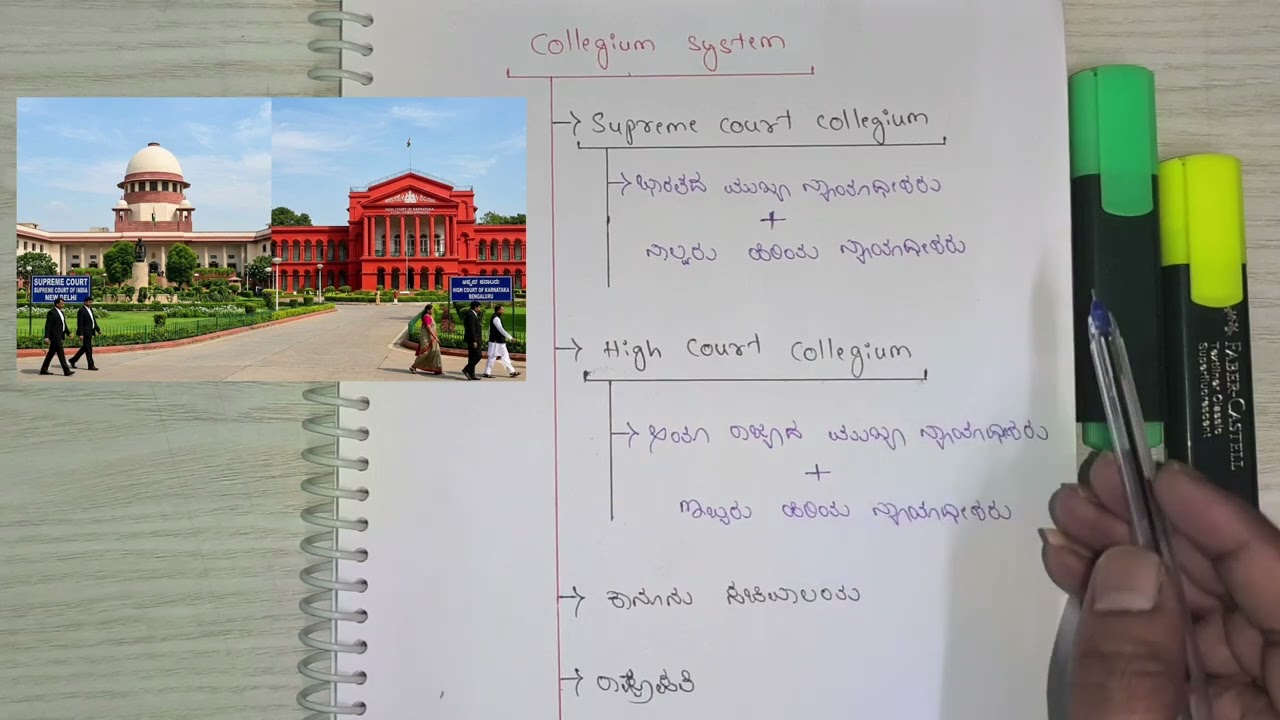 Collegium system
Supreme court collegium
ಭಾರತದ ಮುಖ್ಯ ನ್ಯಾಯಾಧೀಶರು
+
ನಾಲ್ವರು ಹಿರಿಯ ನ್ಯಾಯಾಧೀಶರು
High court collegium
ರಾಜ್ಯದ ಮುಖ್ಯ ನ್ಯಾಯಾಧೀಶರು
+
ಹಿರಿಯ ನ್ಯಾಯಾಧೀಶರು
ಕಾನೂನು ಸಚಿವಾಲಯ
ರಾಷ್ಟ್ರಪತಿ
SUPREME COURT
SUPREME COURT OF INDIA
NEW DELHI
HIGH COURT OF KARNATAKA
HIGH COURT OF KARNATAKA
BENGALURU
FABER-CASTELL
Textliner Classic
Superfluorescent